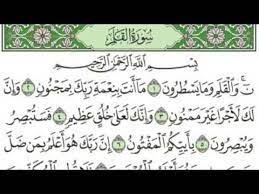 سُورَةُ الْقَلَمِ
بِسْمِ اللَّهِ الرَّحْمَٰنِ الرَّحِيمِ
نٓ ۚ وَالْقَلَمِ وَمَا يَسْطُرُونَ ١ مَا أَنتَ بِنِعْمَةِ رَبِّكَ بِمَجْنُونٍ ٢ وَإِنَّ
لَكَ لَأَجْرًا غَيْرَ مَمْنُونٍ ٣ وَإِنَّكَ لَعَلَىٰ خُلُقٍ عَظِيمٍ ٤ فَسَتُبْصِرُ
وَيُبْصِرُونَ ٥ بِأَييِّكُمُ الْمَفْتُونُ ٦ إِنَّ رَبَّكَ هُوَ أَعْلَمُ بِمَن ضَلَّ